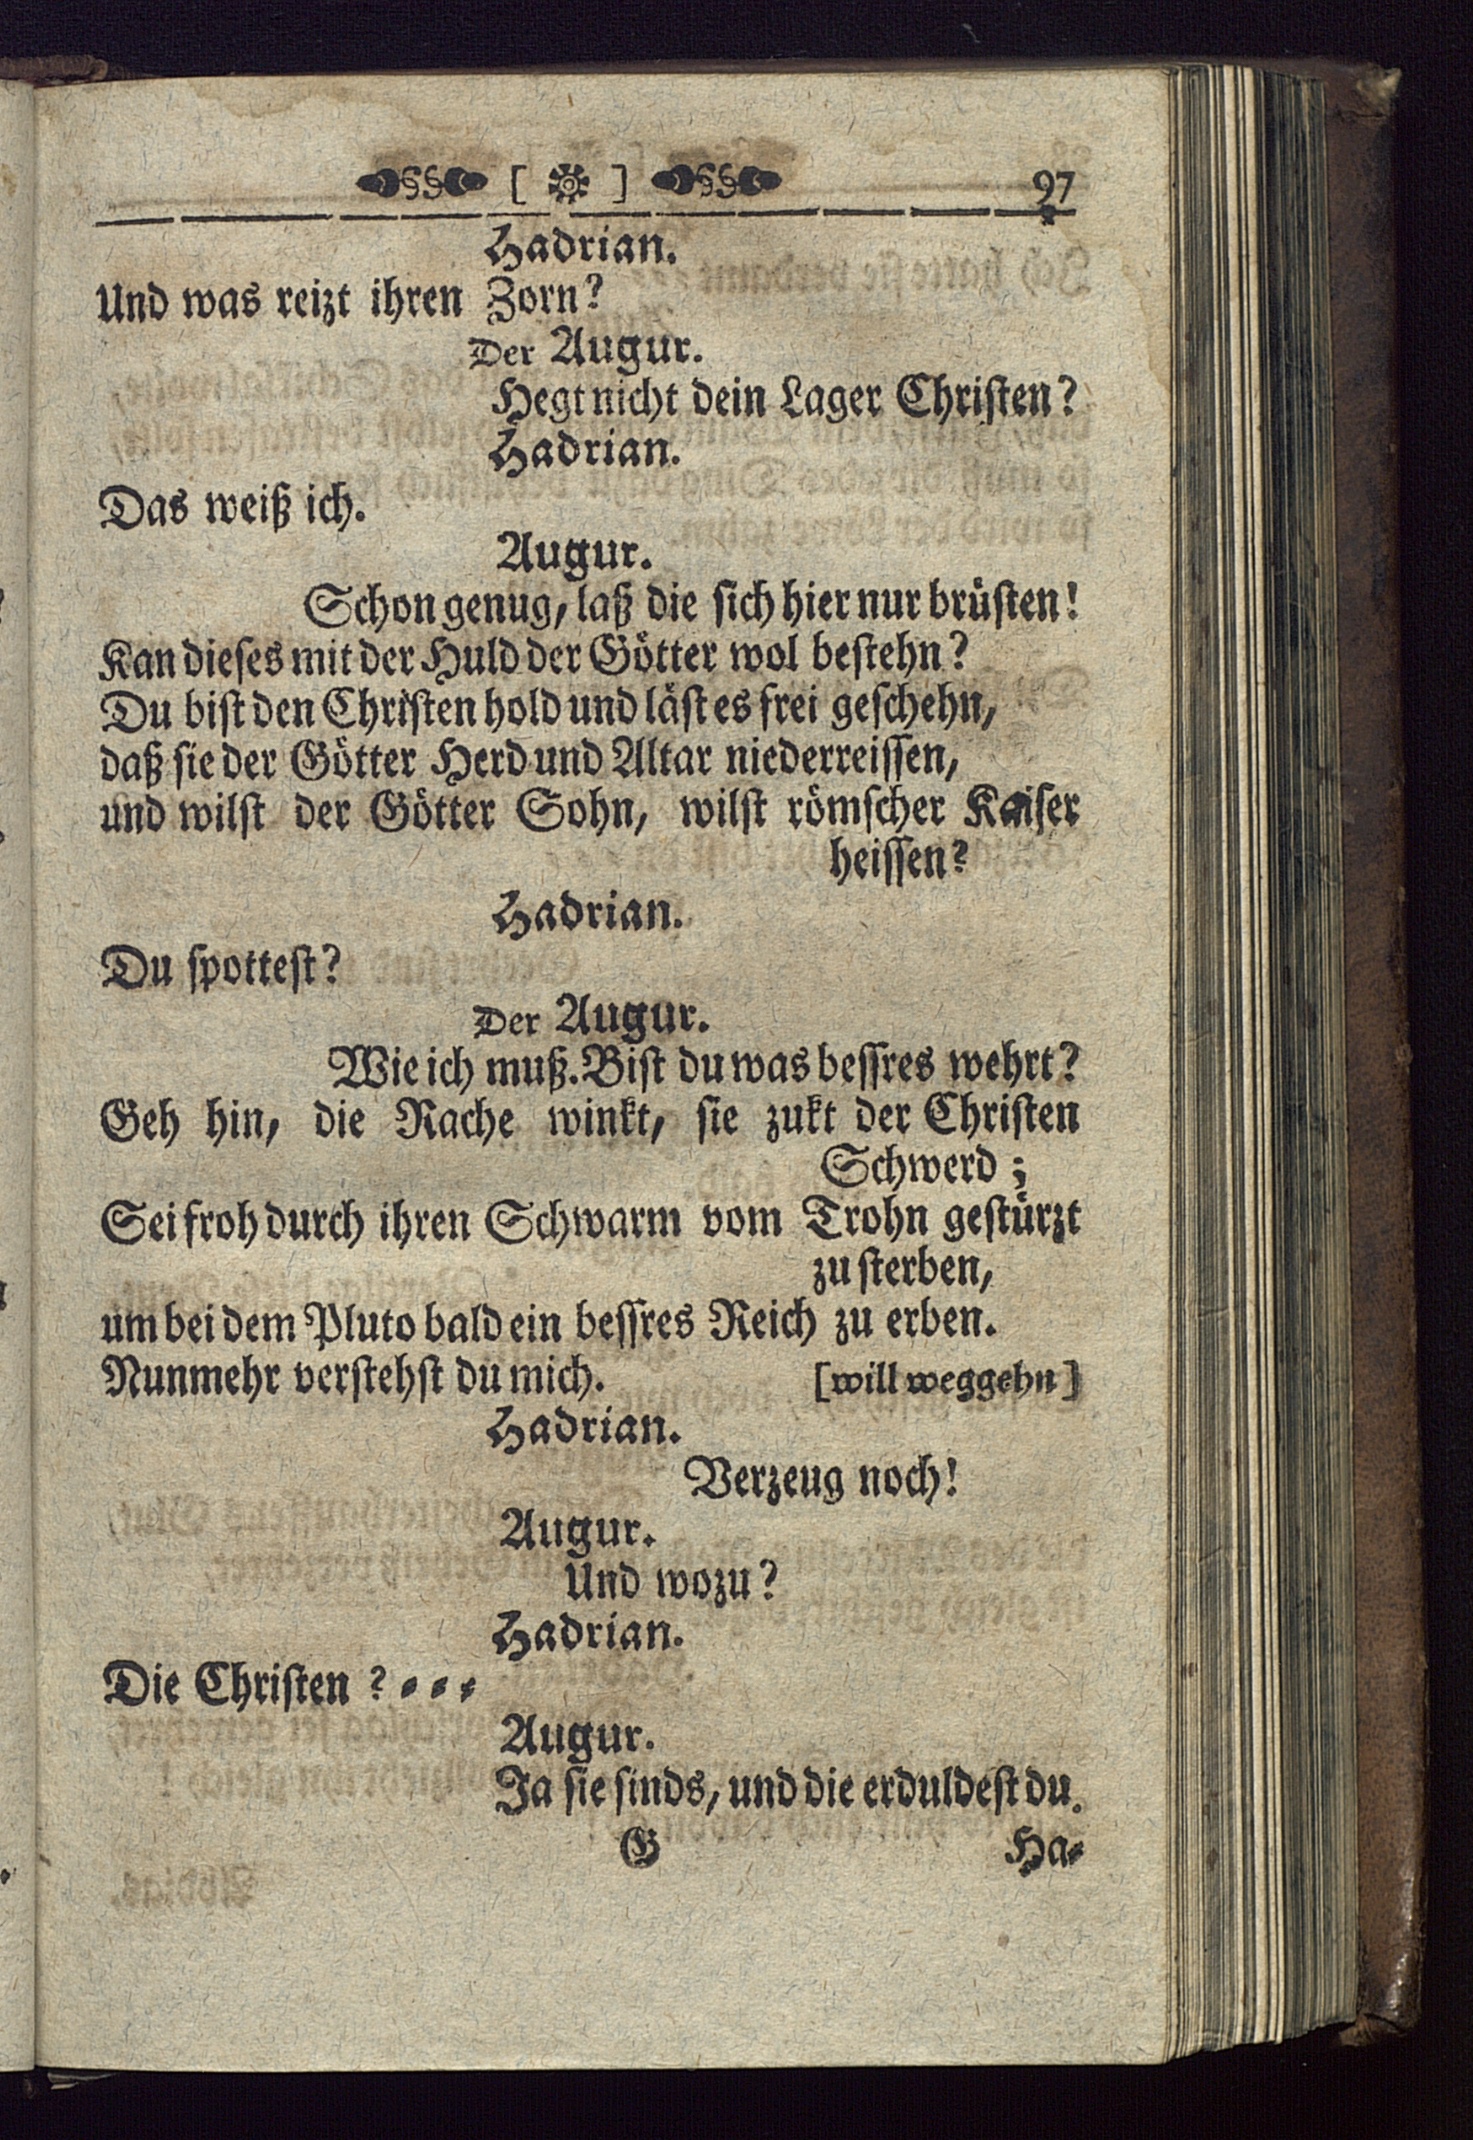 §§ [ ] §§ 97
Hadrian.
Und was reizt ihren Zorn?
Der Augur.
Hegt nicht dein Lager Chriſten?
Hadrian.
Das weiß ich.
Augur.
Schon genug, laß die ſich hier nur brüſten!
Kan dieſes mit der Huld der Götter wol beſtehn?
Du biſt den Chriſten hold und läſt es frei geſchehn,
daß ſie der Götter Herd und Altar niederreiſſen,
und wilſt der Götter Sohn, wilſt römſcher Kaiſer
heiſſen?
Hadrian.
Du ſpotteſt?
Der Augur.
Wie ich muß. Biſt du was beſſres wehrt?
Geh hin, die Rache winkt, ſie zukt der Chriſten
Schwerd;
Sei froh durch ihren Schwarm vom Trohn geſtürzt
zu ſterben,
um bei dem Pluto bald ein beſſres Reich zu erben.
Nunmehr verſtehſt du mich. [will weggehn]
Hadrian.
Verzeug noch!
Augur.
Und wozu?
Hadrian.
Die Chriſten? ⸗ ⸗ ⸗
Augur.
Ja ſie ſinds, und die erduldeſt du.
G Ha⸗